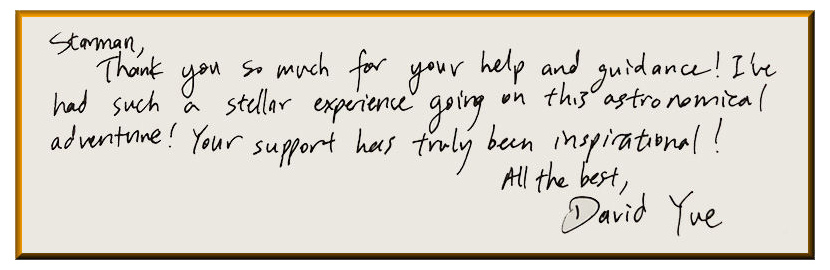 Starman,
Thank you so much for your help and guidance! I've
had such a stellar experience going on this astronomical
adventure! Your support has truly been inspirational!
All the best,
David Yue